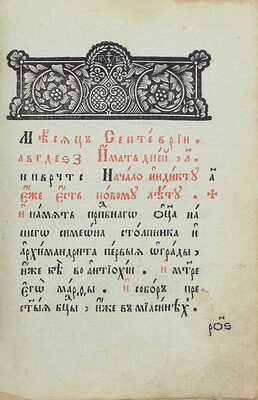 Мѣсяцъ Септеврїи.
а в г д е ѕ з И҆мать дн҃їй л҃.
и п в р ч т с Начало и҆ндїкту а҃
є҆́же є҆́сть новому лѣту. ☩
и҆ память прпⷣбнагѡ ѻ҆ц҃а на
шегѡ сѵмеѡна столпника и҆
а҆рхимандрита первыѧ ѡ҆грады;
и҆́же бѣ во а҆нтїохїи. и҆ мт҃ре
є҆гѡ̀ марѳы. и҆ соборъ пре
ст҃ыѧ бц҃ы; и҆́же в мїасинѣхъ.